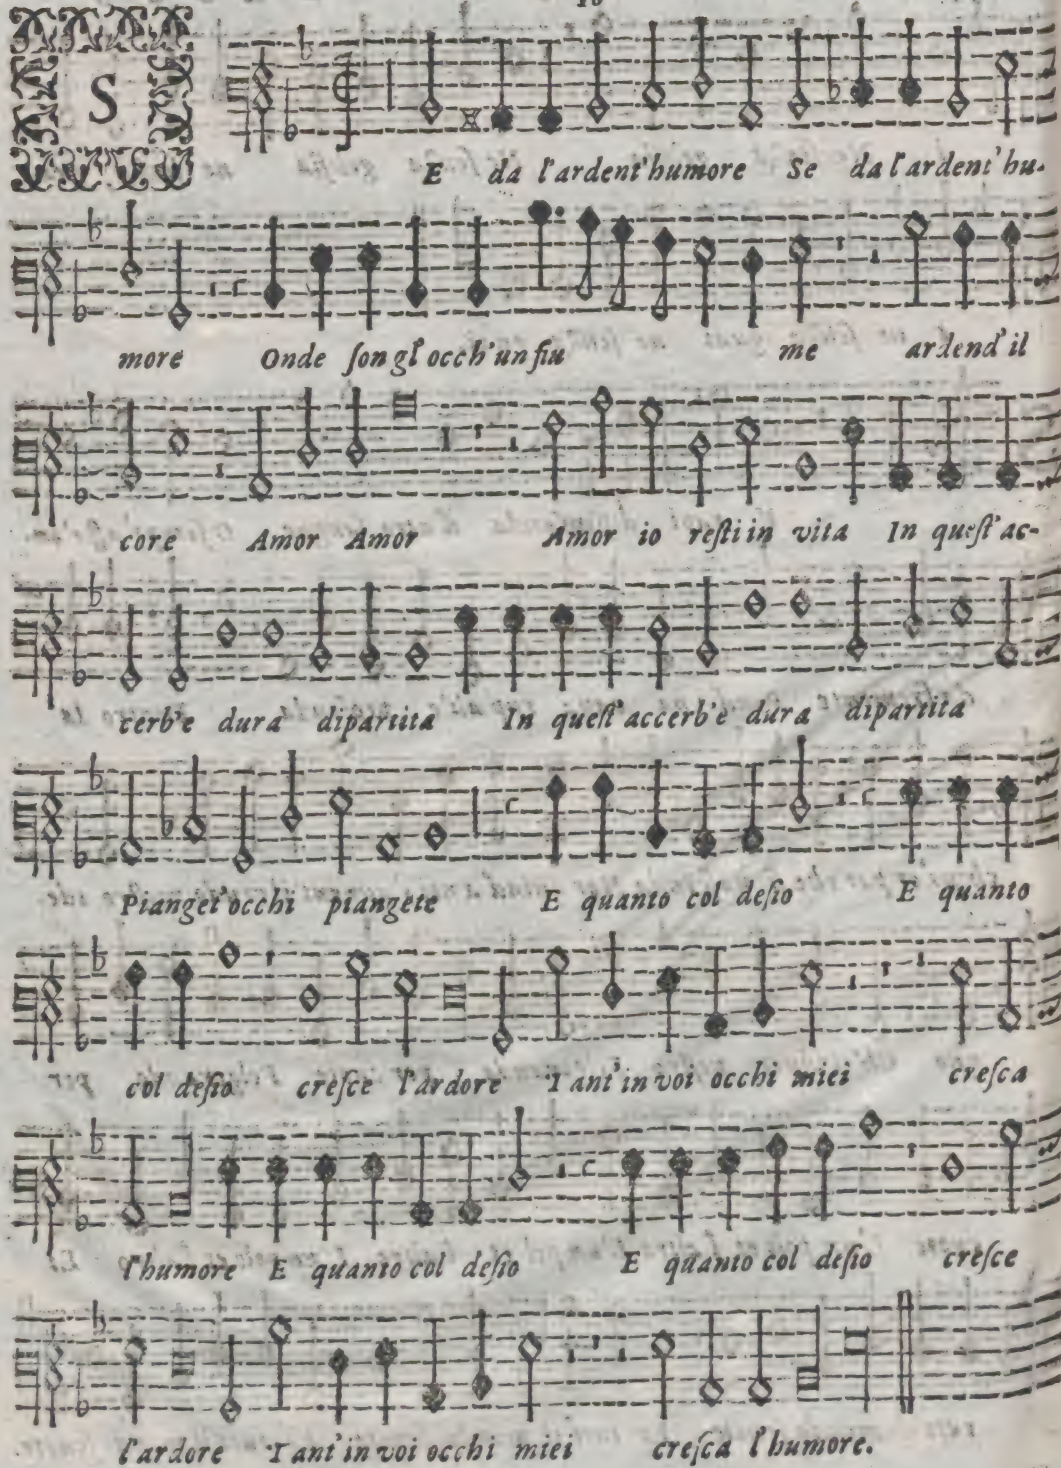 S
E da l'ardent'humore Se da l'ardent'hu-
more Onde ſon gl'occh'un fiu me ardend'il
core Amor Amor Amor io reſti in vita In queſt'ac-
cerb'e dura dipartita In queſt'accerb'e dura dipartita
Pianget'occhi piangete E quanto col deſio E quanto
col deſio creſce l'ardore Tant'in voi occhi miei creſca
l'humore E quanto col deſio E quanto col deſio creſce
l'ardore Tant'in voi occhi miei creſca l'humore.